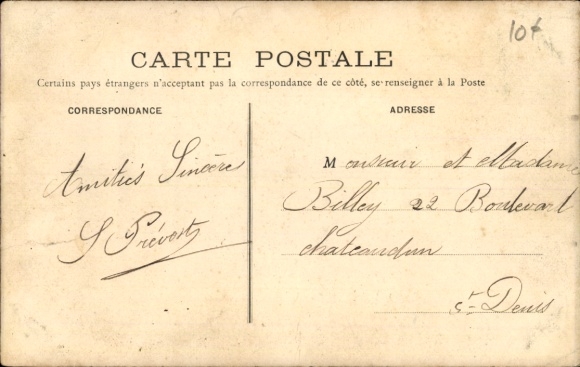 10f
CARTE POSTALE
Certains pays étrangers n'acceptant pas la correspondance de ce côté, se renseigner à la Poste
CORRESPONDANCE
Amitiés Sincère
S Prévost
ADRESSE
Monsieur et Madame
Billey 22 Boulevart
chateaudun
St Denis